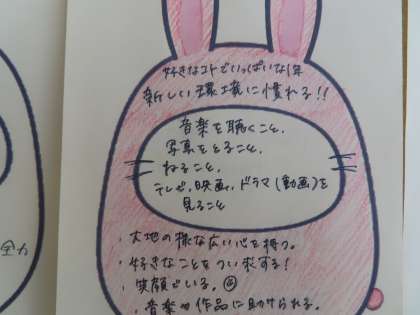 好きなコトでいっぱいな1年
新しい環境に慣れる!!
音楽を聴くこと、
写真をとること、
ねること、
テレビ、映画、ドラマ(動画)を
見ること
・大地の様な広い心を持つ。
・好きなことをつい求する!
・笑顔でいる。
・音楽や作品に助けられる。
全力